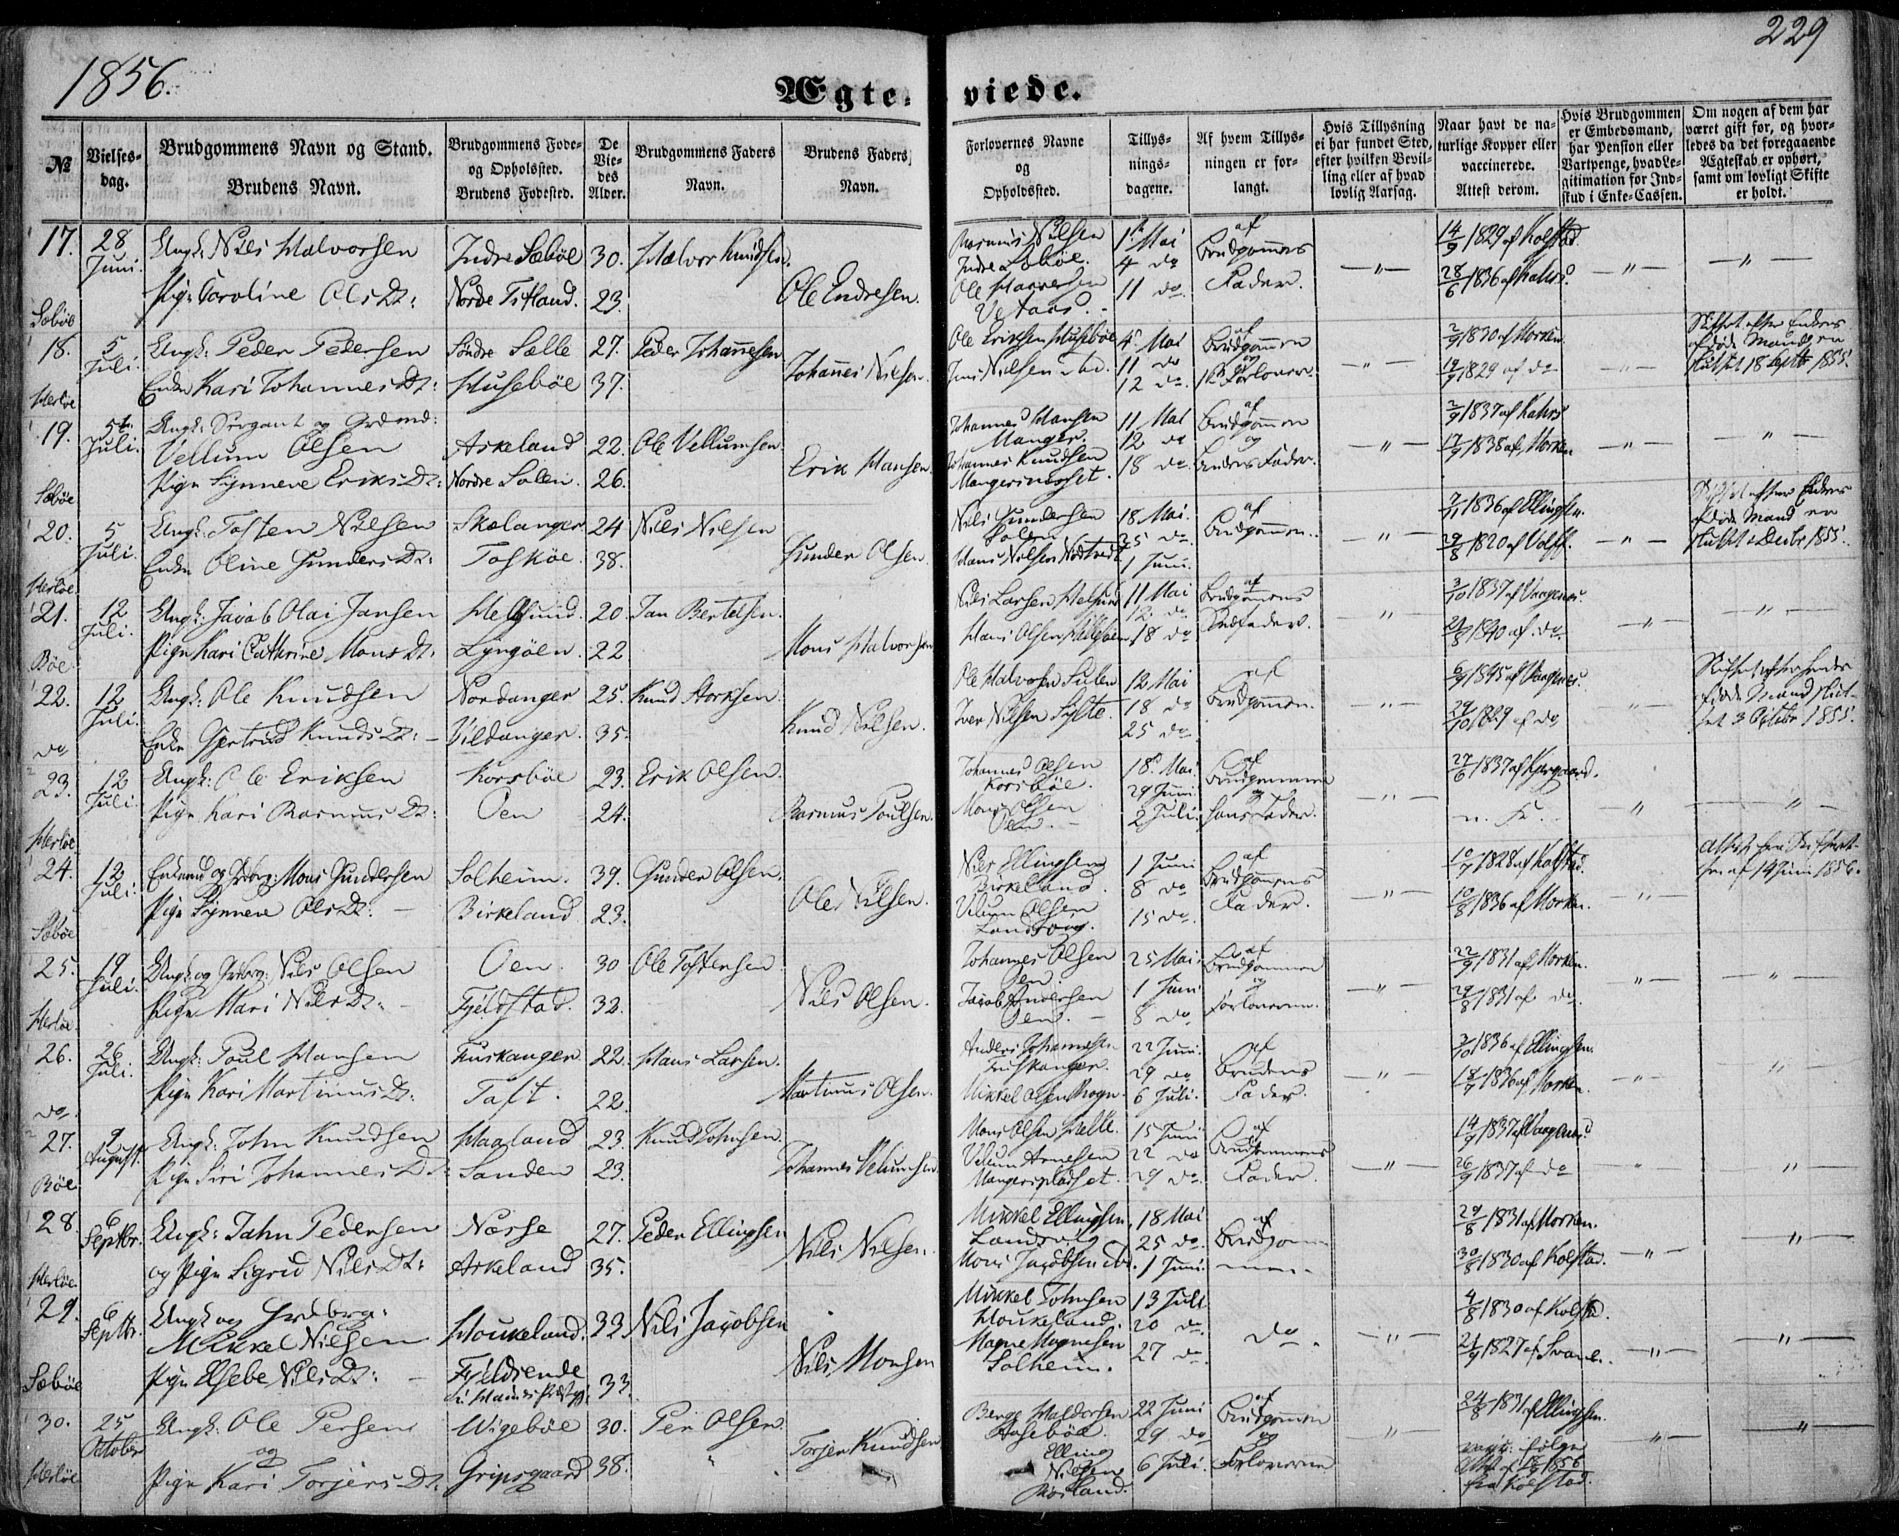 1856.
229
Ægte-
viede.
№
Vielses-
dag.
Brudgommens Navn og Stand.
Brudens Navn.
Brudgommens Føde-
og Opholssted.
Brudens Fødested.
De
Vie-
des
Alder.
Brudgommens Faders
Navn.
Brudens Faders
Navn.
Forlovernes Navne
og
Opholdssted.
Tillys-
nings-
dagene.
Af hvem Tillys-
ningen er for-
langt.
Hvis Tillysning
ei har fundet Sted,
efter hvilken Bevil-
ling eller af hvad
lovlig Aarsag.
Naar havt de na-
turlige Kopper eller
vaccinerede.
Attest derom.
Hvis Brudgommen
er Embedsmand,
har Pension eller
Vartpenge, hvad Le-
gitimation for Ind-
skud i Enke-Cassen.
Om nogen af dem har
været gift før, og hvor-
ledes da det foregaaende
Ægteskab er ophørt,
samt om lovligt Skifte
er holdt.
17. 28 Juni Ungk: Nils Halvorsen Indre Sæbøe 30. Halvor Knudsen. Rasmus Nilsen Indre Sæbøe. 1 Mai 4 do af Brudgommens 14/9 1829 af Kolstad.
Sæbøe Pige Caroline Ols Dt: Nordre Titland. 23. Ole Endresen. Ole 11 do Fader. 28/6 1836 af Kahrs.
18. 5 Juli. Ungk: Peder Pedersen Søndre Sælle 27. Peder Johannesen. Ole Eriksen Husebøe 4 Mai af Brudgommen 2/9 1830 af Morken.
Herløe Enke Kari Johannes Dt: Husebøe 37. Johannes Nilsen. Jens Nielsen ibd. 11 do 12 do. og Forlover. 1829 af do
19. 5te Juli. Ungk: Sergant og Grdmd: Vellum Olsen Askeland 22. Ole Vellumsen. Johannes Hansen Manger. 11 Mai 12 do af Brudgommen og 2/9 1837 af Kahrs
Sæbøe Pige Synneve Eriks Dt: Nordre Solen. 26. Erik Hansen. Johannes Knudsen 18 do. Brudens Fader. 17/9 1838 af Morken
20. 5 Juli. Ungk: Tosten Nilsen Skalanger 24 Nils Nilsen Nils Gundersen 18 Mai. af Brudgommen. 7/11 1836 af Ellingsen.
Herløe Enke Oline Gunders Dt: Toskøe. 38. Gunder Olsen. Hans Nilsen 25 do. 1 Juni. 29/8 1820 af Wolff.
21. 12 Juli. Ungk: Jacob Olai Jansen Helgsund. 20. Jan Bertelsen. Nils Larsen Helsund 11 Mai 12 do af Brudgommens 3/10 1837 af Vaagenes.
Bøe Pige Kari Cathrine Mons Dt: Lyngøen. 22 Mons Halvorsen Hans Olsen 18 do 1840 af do
22. 12 Juli. Ungk: Ole Knudsen Nordanger 25. Knud Storksen. Ole Halvorsen Sulen 12 Mai af Brudgommen. 6/9 1845 af Vaagenes.
do Enke Gertrud Knuds Dt: Vildanger. 35. Knud Nilsen. Iver Nilsen Syfte. 18 do 25 do 29/10 1829 af do
23. 12 Juli. Ungk: Ole Eriksen Korsbøe 23. Erik Olsen. Johannes Olsen Korsbøe. 18 Mai. 29 Juni af Brudgommen og 27/6 1837 af Kjergaard.
Herløe Pige Kari Rasmus Dt: Oen 24. Rasmus Poulsen. Mons Olsen Oen. 2 Juli. hans Fader. n. K.
24. 12 Juli. Enkemd og Grdbrg: Mons Gundersen Solheim. 39. Gunder Olsen. Nils Ellingsen Birkeland. 1 Juni 8 do af Brudgommens 10/9 1828 af Kolstad.
Sæbøe Pige Synneve Ols Dt: Birkeland 23. Ole Nilsen. Velum Olsen Landsvig. 15 do Fader. 10/8 1836 af Morken.
25. 19 Juli. Ungk og Grdbrg: Nils Olsen Oen. 30 Ole Tostensen. Johannes Olsen Oen. 25 Mai. af Brudgommen og 22/9 1831 af Morken.
Herløe Pige Mari Nils Dt: Fjeldstad. 32. Nils Olsen. Jacob Andersen Oen. 1 Juni 8 do Forloverne. 29/8 1831 af do
26. 26 Juli. Ungk: Poul Hansen Fuskanger 22. Hans Larsen. Anders Johannesen 22 Juni. 29 do af Brudens 3/10 1836 af Ellingsen.
do Pige Kari Martinus Dt: Toft. 22. Martinus Olsen. Mikkel Olsen Rogn. 6 Juli. Fader. 18/9 1836 af Morken.
27. 9 August. Ungk: John Knudsen Haaland 23 Knud Johnsen. Mons Olsen Sælle. 15 Juni af Brudgommens 14/9 1837 af Vaagenes
Bøe Pige Siri Johannes Dt: Sanden 23. Johannes Velumsen. Velum Arnesen Mangerspladset. 22 do 29 do. Fader. 26/9 1837 af do
28. 6 Septbr. Ungk: Jahn Pedersen Næsse 27. Peder Ellingsen Mikkel Ellingsen Landsvig 18 Mai 25 do. af Brudgommen 29/8 1831 af Morken.
Herløe og Pige Sigrid Nils Dt: Askeland 35. Nils Nilsen. Mons Jacobsen ibd. 1 Juni. 30/8 1830 af Kolstad.
29. 6 Septbr. Ungk og Grdbrg: Mikkel Nilsen Houkeland. 33 Nils Jacobsen Mikkel Johnsen Houkeland. 13 Juli 20 do do. 4/8 1830 af Kolstad.
Sæbøe Pige Elsebe Nils Dt: Fjeldsende 33. Nils Monsen Magne Magnesen Solheim. 27 do 21/9 1827 af Svane.
30. 25 October Ungk: Ole Persen Wigebøe 30. Per Olsen. Berge Haldorsen Husebøe. 22 Juni 29 do af Brudgommen og 24/8 1831 af Ellingsen.
Herløe og Pige Kari Torjers Dt: Gripsgaard 38. Torjer Knudsen Elling Nilsen 6 Juli. Forloverne vacc: følge Att af 1856 fra Kolstad.